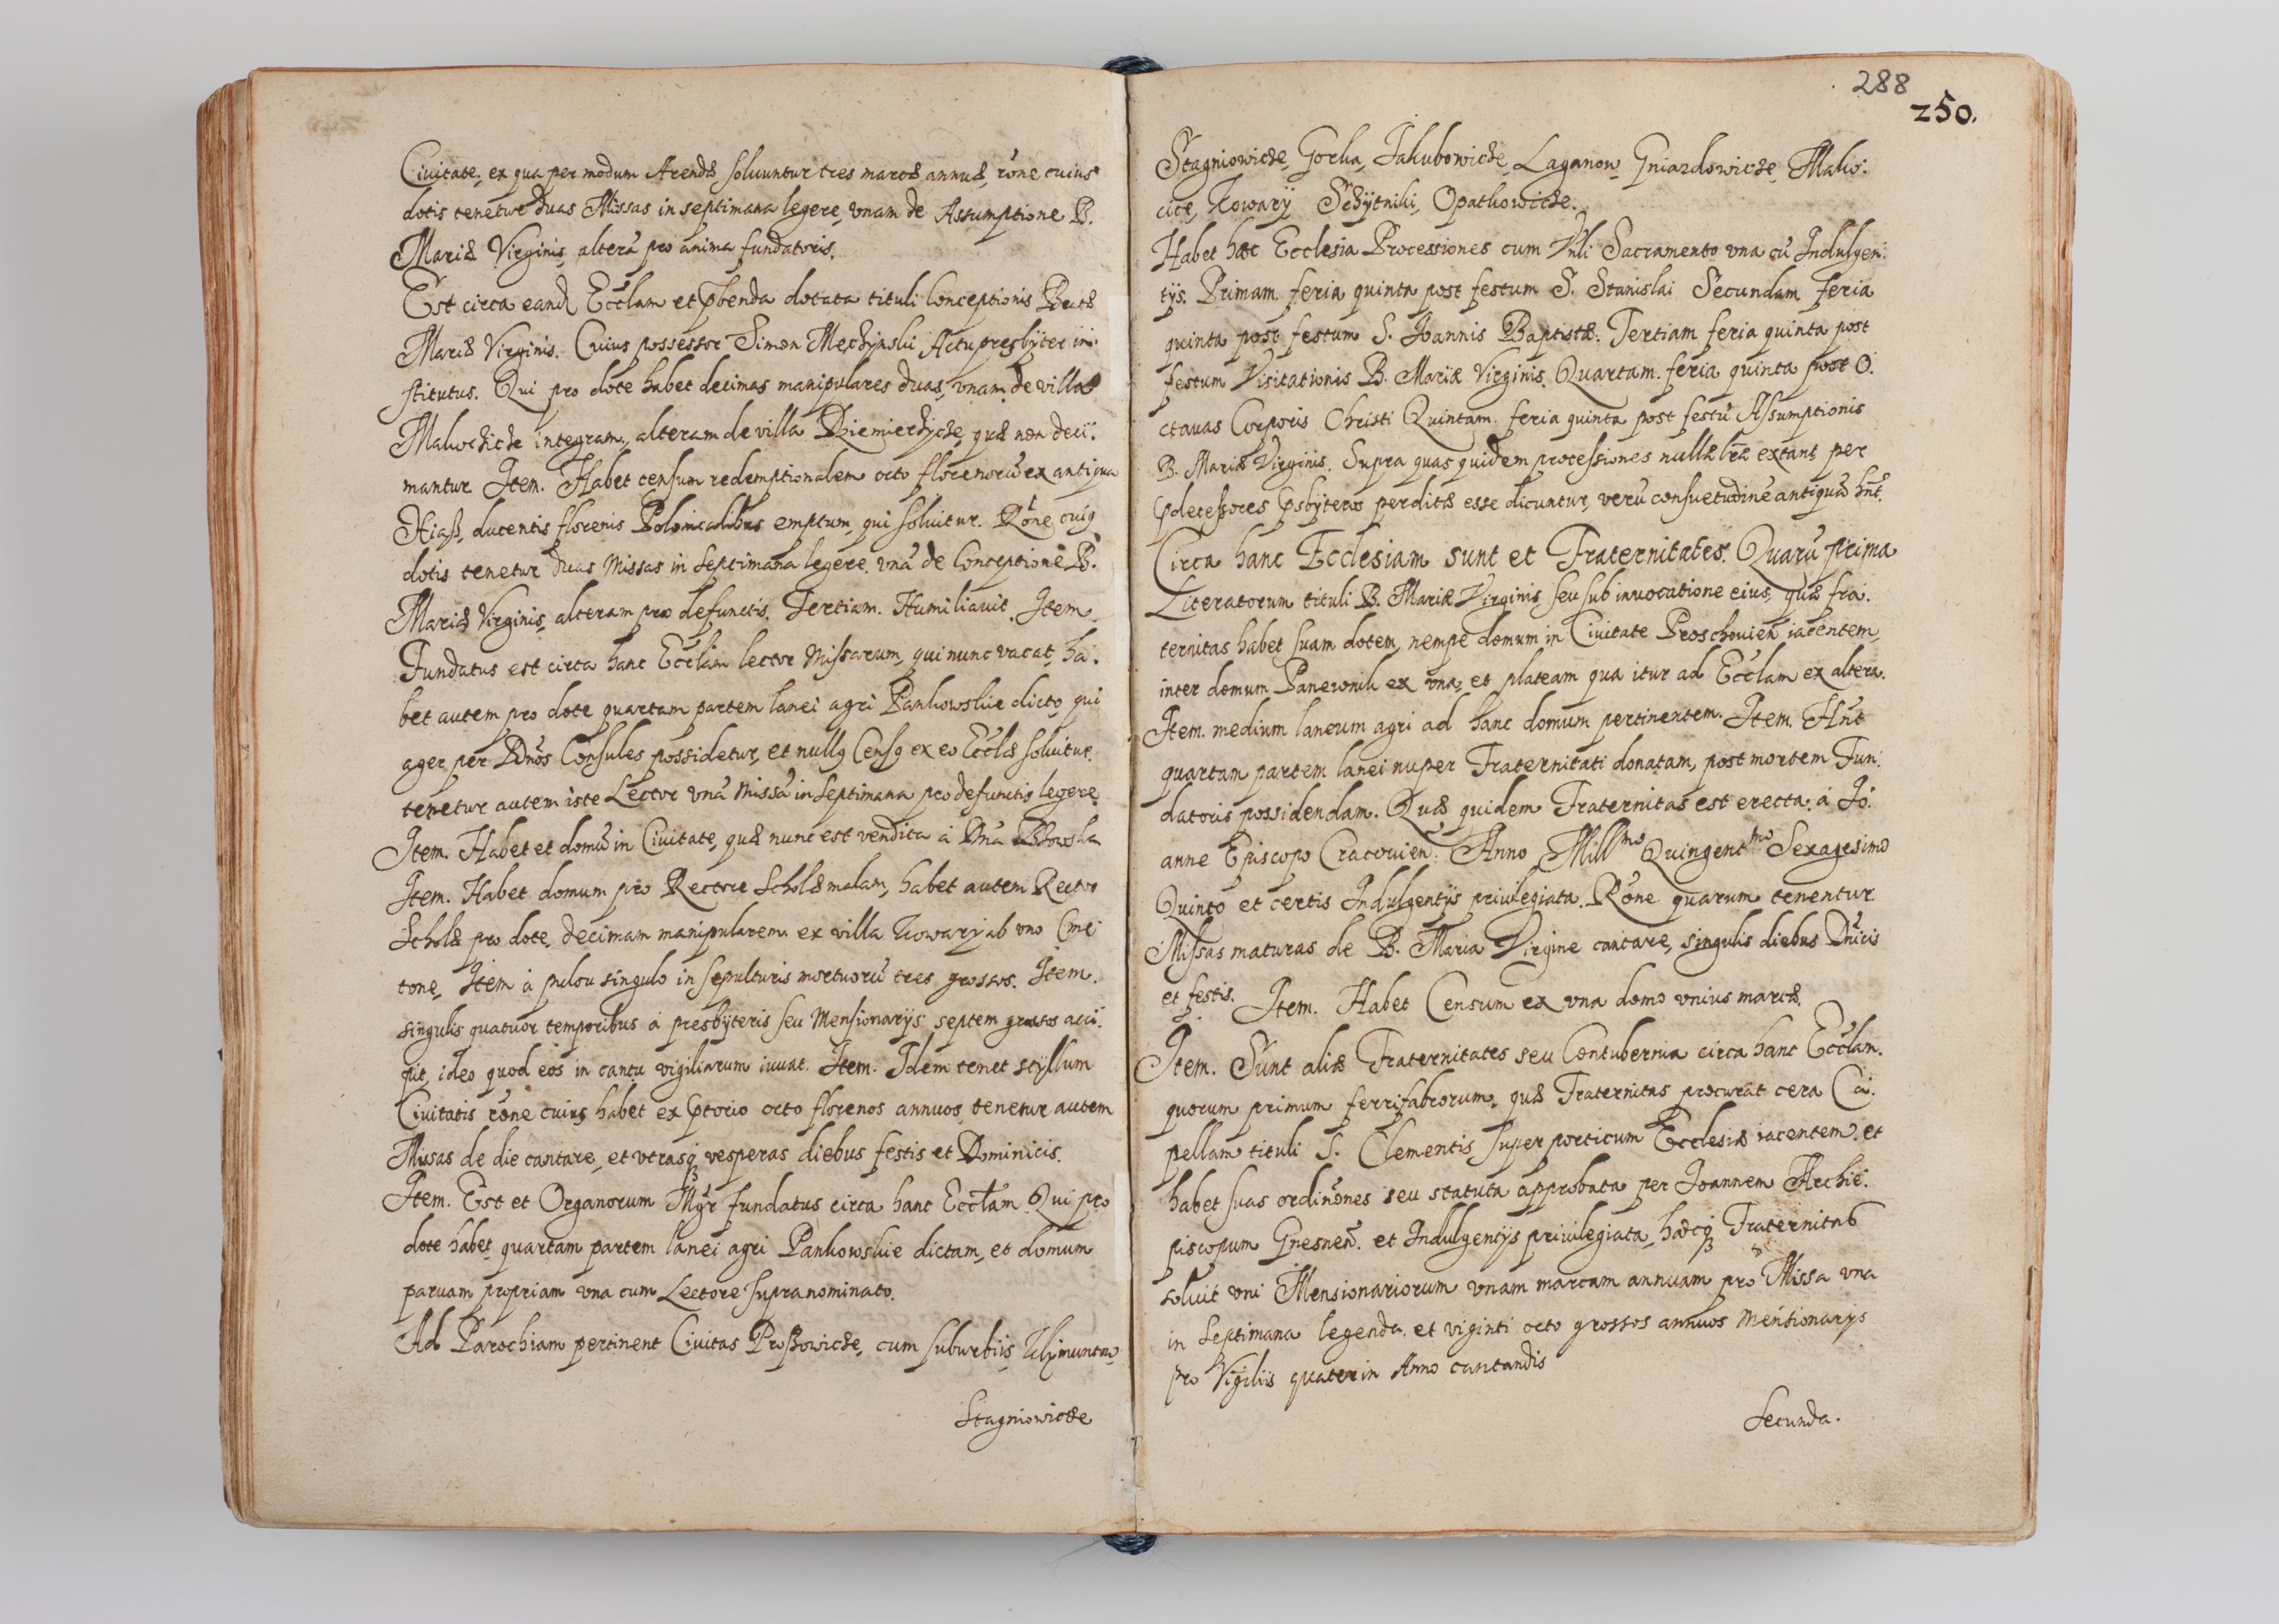 Ciuitate, ex qua per modum Arendæ soluuntur tres marcæ annuæ, rōne cuius
dotis tenetur duas Missas in septimana legere, vnam de Assumptione B.
Mariæ Virginis, alterā pro anima fundatoris.
Est circa eand Ecclam et pbenda dotata tituli Conceptionis Beatæ
Mariæ Virginis. Cuius possessor Simon Mechynski Actu presbÿter in:
stitutus. Qui pro dote habet decimas manipulares duas, vnam de villa
Makochiche integram, alteram de villa Dziemierzÿcze, quæ non deci:
mantur. Item. Habet censum redemptionalem octo florenorū ex antiqua
ducentis florenis Polonicalibus emptum, qui soluitur. Rōne cuiq
dotis tenetur duas Missas in septimana legere, vnā de Conceptione B.
Mariæ Virginis, alteram pro defunctis. Tertiam. Humiliauit. Item.
Fundatus est circa hanc Ecclam lector Missarum, qui nunc vacat, ha:
bet autem pro dote quartam partem lanei agri Pankowskie dicto, qui
ager per Dnos Consules possidetur, et nullq Censq ex eo Ecclæ soluitur.
tenetur autem iste Lector vnā Missā in septimana pro defunctis legere.
Item. Habet et domū in Ciuitate, quæ nunc est vendita à Dna
Item. Habet domum pro Rectore Scholæ malam, habet autem Rector
Scholæ pro dote, decimam manipularem ex villa Kowary ab vno Cme
tone, Item à pulsu singulo in sepulturis mortuorū tres grossos. Item.
singulis quatuor temporibus à presbÿteris seu Mensionarijs septem grossos acci:
pit, ideo quod eos in cantu vigiliarum iuuat. Item. Idem tenet stÿllum
Ciuitatis rōne cuius habet ex Ptorio octo florenos annuos, tenetur autem
Missas de die cantare, et vtrasq vesperas diebus festis et Dominicis.
Item. Est et Organorum Mgr fundatus circa hanc Ecclam. Qui pro
dote habet quartam partem lanei agri Pankowskie dictam, et domum
paruam propriam vna cum Lectore supranominato.
Ad Parochiam pertinent Ciuitas Proßowicze, cum suburbiis,
Stagniowicze
288
250.
Stagniowicze, Gorka, Jakubowicze, Laganow, Gniazdowicze, Mako:
cice, Kowarÿ Sczÿtniki, Opatkowicze.
Habet hæc Ecclesia Processiones cum Vnli Sacramento vna cū Indulgen:
tijs. Primam. feria quinta post festum S. Stanislai Secundam feria
quinta post festum S. Joannis Baptistæ. Tertiam feria quinta post
festum Visitationis B. Mariæ Virginis. Quartam. feria quinta post O:
ctauas Corporis Christi Quintam. feria quinta post festū Assumptionis
B. Mariæ Virginis. Supra quas quidem processiones nullæ lræ extant per
pdecessores psbÿteros perditæ esse dicuntur, verū consuetudinē antiquā hnt.
Circa hanc Ecclesiam sunt et Fraternitates. Quarū prima
Literatorum tituli B. Mariæ Virginis, seu sub inuocatione eius, quæ fra:
ternitas habet suam dotem, nempe domum in Ciuitate Proschouien iacentem,
inter domum Panewnik ex vna, et plateam qua itur ad Ecclam ex altera.
Item. medium laneum agri ad hanc domum pertinentem. Item. Hnt
quartam partem lanei nuper Fraternitati donatam, post mortem Fun:
datoris possidendam. Quæ quidem Fraternitas est erecta à Jo:
anne Episcopo Cracouien: Anno Millmo Quingentmo Sexagesimo
Quinto et certis Indulgentijs priuilegiata. Rōne quarum tenentur
Missas maturas de B. Maria Virgine cantare, singulis diebus Dnicis
et festis. Item. Habet Censum ex vna domo vnius marcæ.
Item. Sunt aliæ Fraternitates seu Contubernia circa hanc Ecclam.
quorum primum ferrifabrorum, quæ Fraternitas procurat cera Ca:
pellam tituli S. Clementis super porticum Ecclesiæ iacentem. et
habet suas ordinōnes seu statuta approbata per Joannem Archie:
piscopum Gnesnen. et Indulgentijs priuilegiata, hæcq Fraternitas
soluit vni Mensionariorum vnam marcam annuam pro Missa vna
in septimana legenda. et viginti octo grossos annuos Mensionarijs
pro Vigiliis quater in Anno cantandis
Secunda.